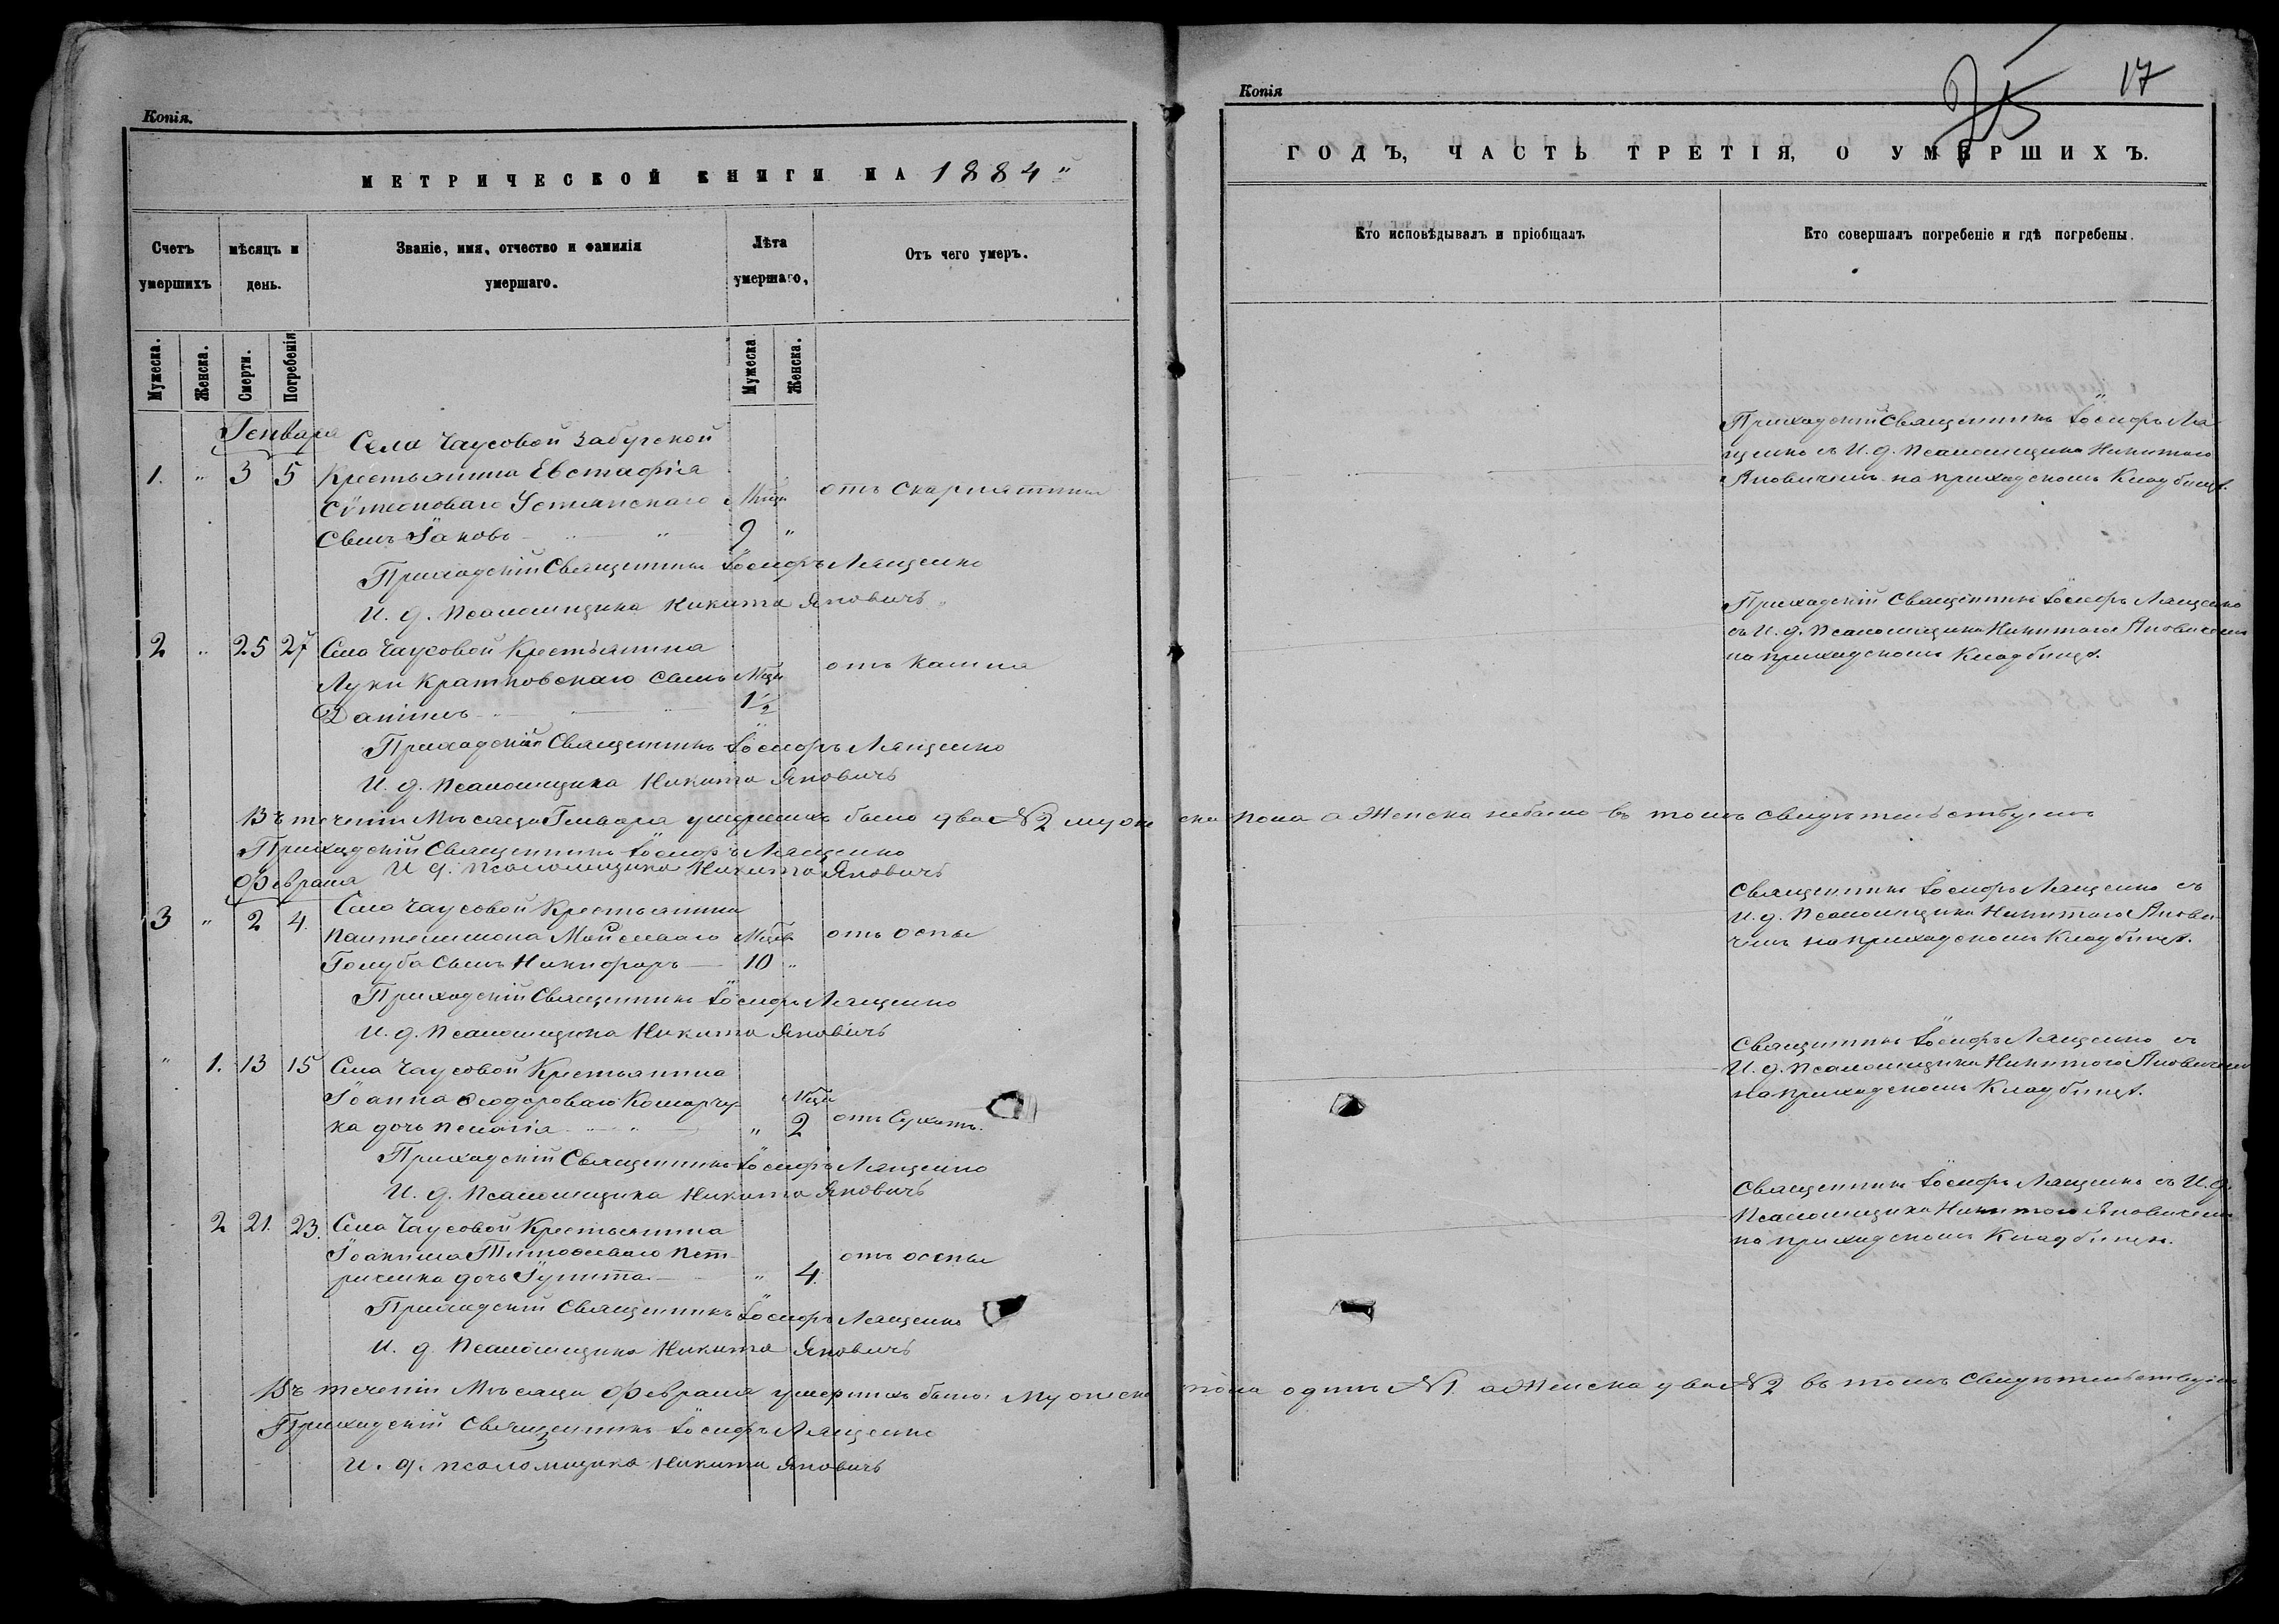 Копія.
МЕТРИЧЕСКОЙ КНИГИ НА 1884"
Счетъ умершихъ
мѣсяцъ и день.
Званіе, имя, отчество и фамилія умершаго.
Лѣта умершаго,
Отъ чего умеръ.
Мужеска.
Женска.
Смерти.
Погребенія
Мужеска
Женска.
Генваря
Села Чаусовой Забугской
1. " 3 5 Крестьянина Евстафія
Сѵмеоноваго Устянскаго Мѣц. отъ скарлятины
Сынъ Іаковъ 9 "
Приходскій Священникъ Іосифъ Лященко
И. д. Псаломщика Никита Яновичъ
2 " 25 27 Села Чаусовой Крестьянина
Луки Кратковскаго сынъ Мѣц. отъ кашля
Даніилъ 1½
Приходскій Священникъ Іосифъ Лященко
И. д. Псаломщика Никита Яновичъ
Въ теченіи Мѣсяца Генваря умершихъ было два № 2 мужеска пола а Женска небыло въ томъ свидѣтельствуемъ
Приходскій Священникъ Іосифъ Лященко
И д. Псаломщика Никита Яновичъ
Февраля
3 " 2 4. Села Чаусовой Крестьянина
Пантелимона Мойсеваго Мѣц. отъ оспы
Голуба сынъ Никифоръ 10 "
Приходскій Священникъ Іосифъ Лященко
И. д. Псаломщика Никита Яновичъ
" 1. 13 15 Села Чаусовой Крестьянина
Іоанна Ѳеодороваго Комарчу- Мѣц.
ка дочь Пелагія " 2 отъ Сухотъ.
Приходскій Священникъ Іосифъ Лященко
И. д. Псаломщика Никита Яновичъ
2 21. 23. Села Чаусовой Крестьянина
Іоакима Тимоѳеваго Пет- отъ оспы
риченка дочь Іулитта " 4.
Приходскій Священникъ Іосифъ Лященко
И. д. Псаломщика Никита Яновичъ
Въ теченіи Мѣсяца Февраля умершихъ было: мужеска пола одинъ № 1 а Женска два № 2 въ томъ Свидѣтельствуемъ
Приходскій Священникъ Іосифъ Лященко
И. д. псаломщика Никита Яновичъ
Копія
17
ГОДЪ, ЧАСТЬ ТРЕТІЯ, О УМЕРШИХЪ.
Кто исповѣдывалъ и пріобщалъ
Кто совершалъ погребеніе и гдѣ погребены.
Приходскій Священникъ Іосифъ Ля
щенко съ И. д. Псаломщика Никитою
Яновичемъ на приходскомъ Кладбищѣ.
Приходскій Священникъ Іосифъ Лященко
съ И. д. Псаломщика Никитою Яновичемъ
на приходскомъ Кладбищѣ.
Священникъ Іосифъ Лященко съ
И. д. Псаломщика Никитою Янови-
чемъ на приходскомъ Кладбищѣ.
Священникъ Іосифъ Лященко съ
И. д. Псаломщика Никитою Яновичемъ
на приходскомъ Кладбищѣ.
Священникъ Іосифъ Лященко съ И. д.
Псаломщика Никитою Яновичемъ
на приходскомъ Кладбищѣ.